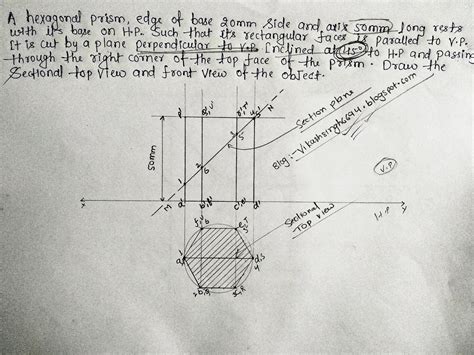 A hexagonal prism, edge of base 20mm side and axis 50mm long rests
with its base on H.P. Such that its rectangular faces is Paralled to V.P.
It is cut by a plane perpendicular to V.P. Inclined at 45° to H.P and passing
through the right corner of the top face of the prism. Draw the
Sectional top view and front view of the object.
Section plane
Blog:- Vikashsingh6694.blogspot.com
50mm
N
M
X
Y
V.P
H.P
Sectional
Top view